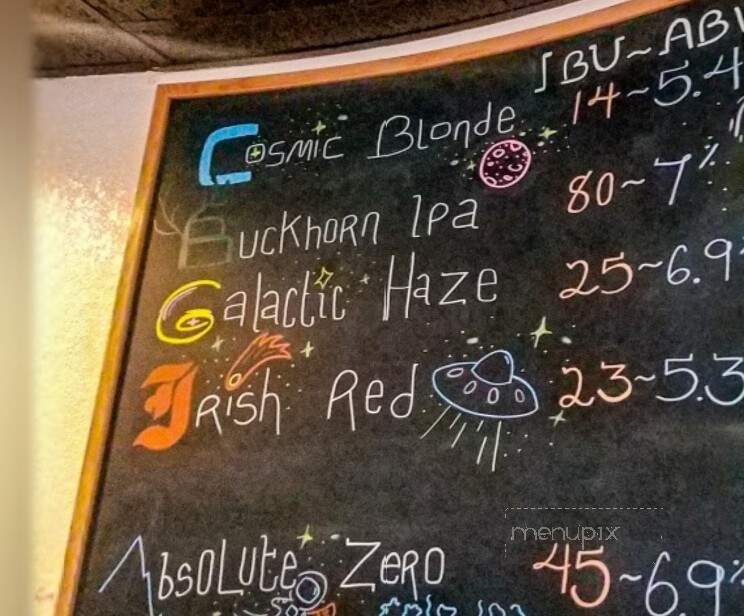 IBU~ABV
Cosmic Blonde 14~5.4
Buckhorn Ipa 80~7%
Galactic Haze 25~6.9
Irish Red 23~5.3
menupix
Absolute Zero 45~69%